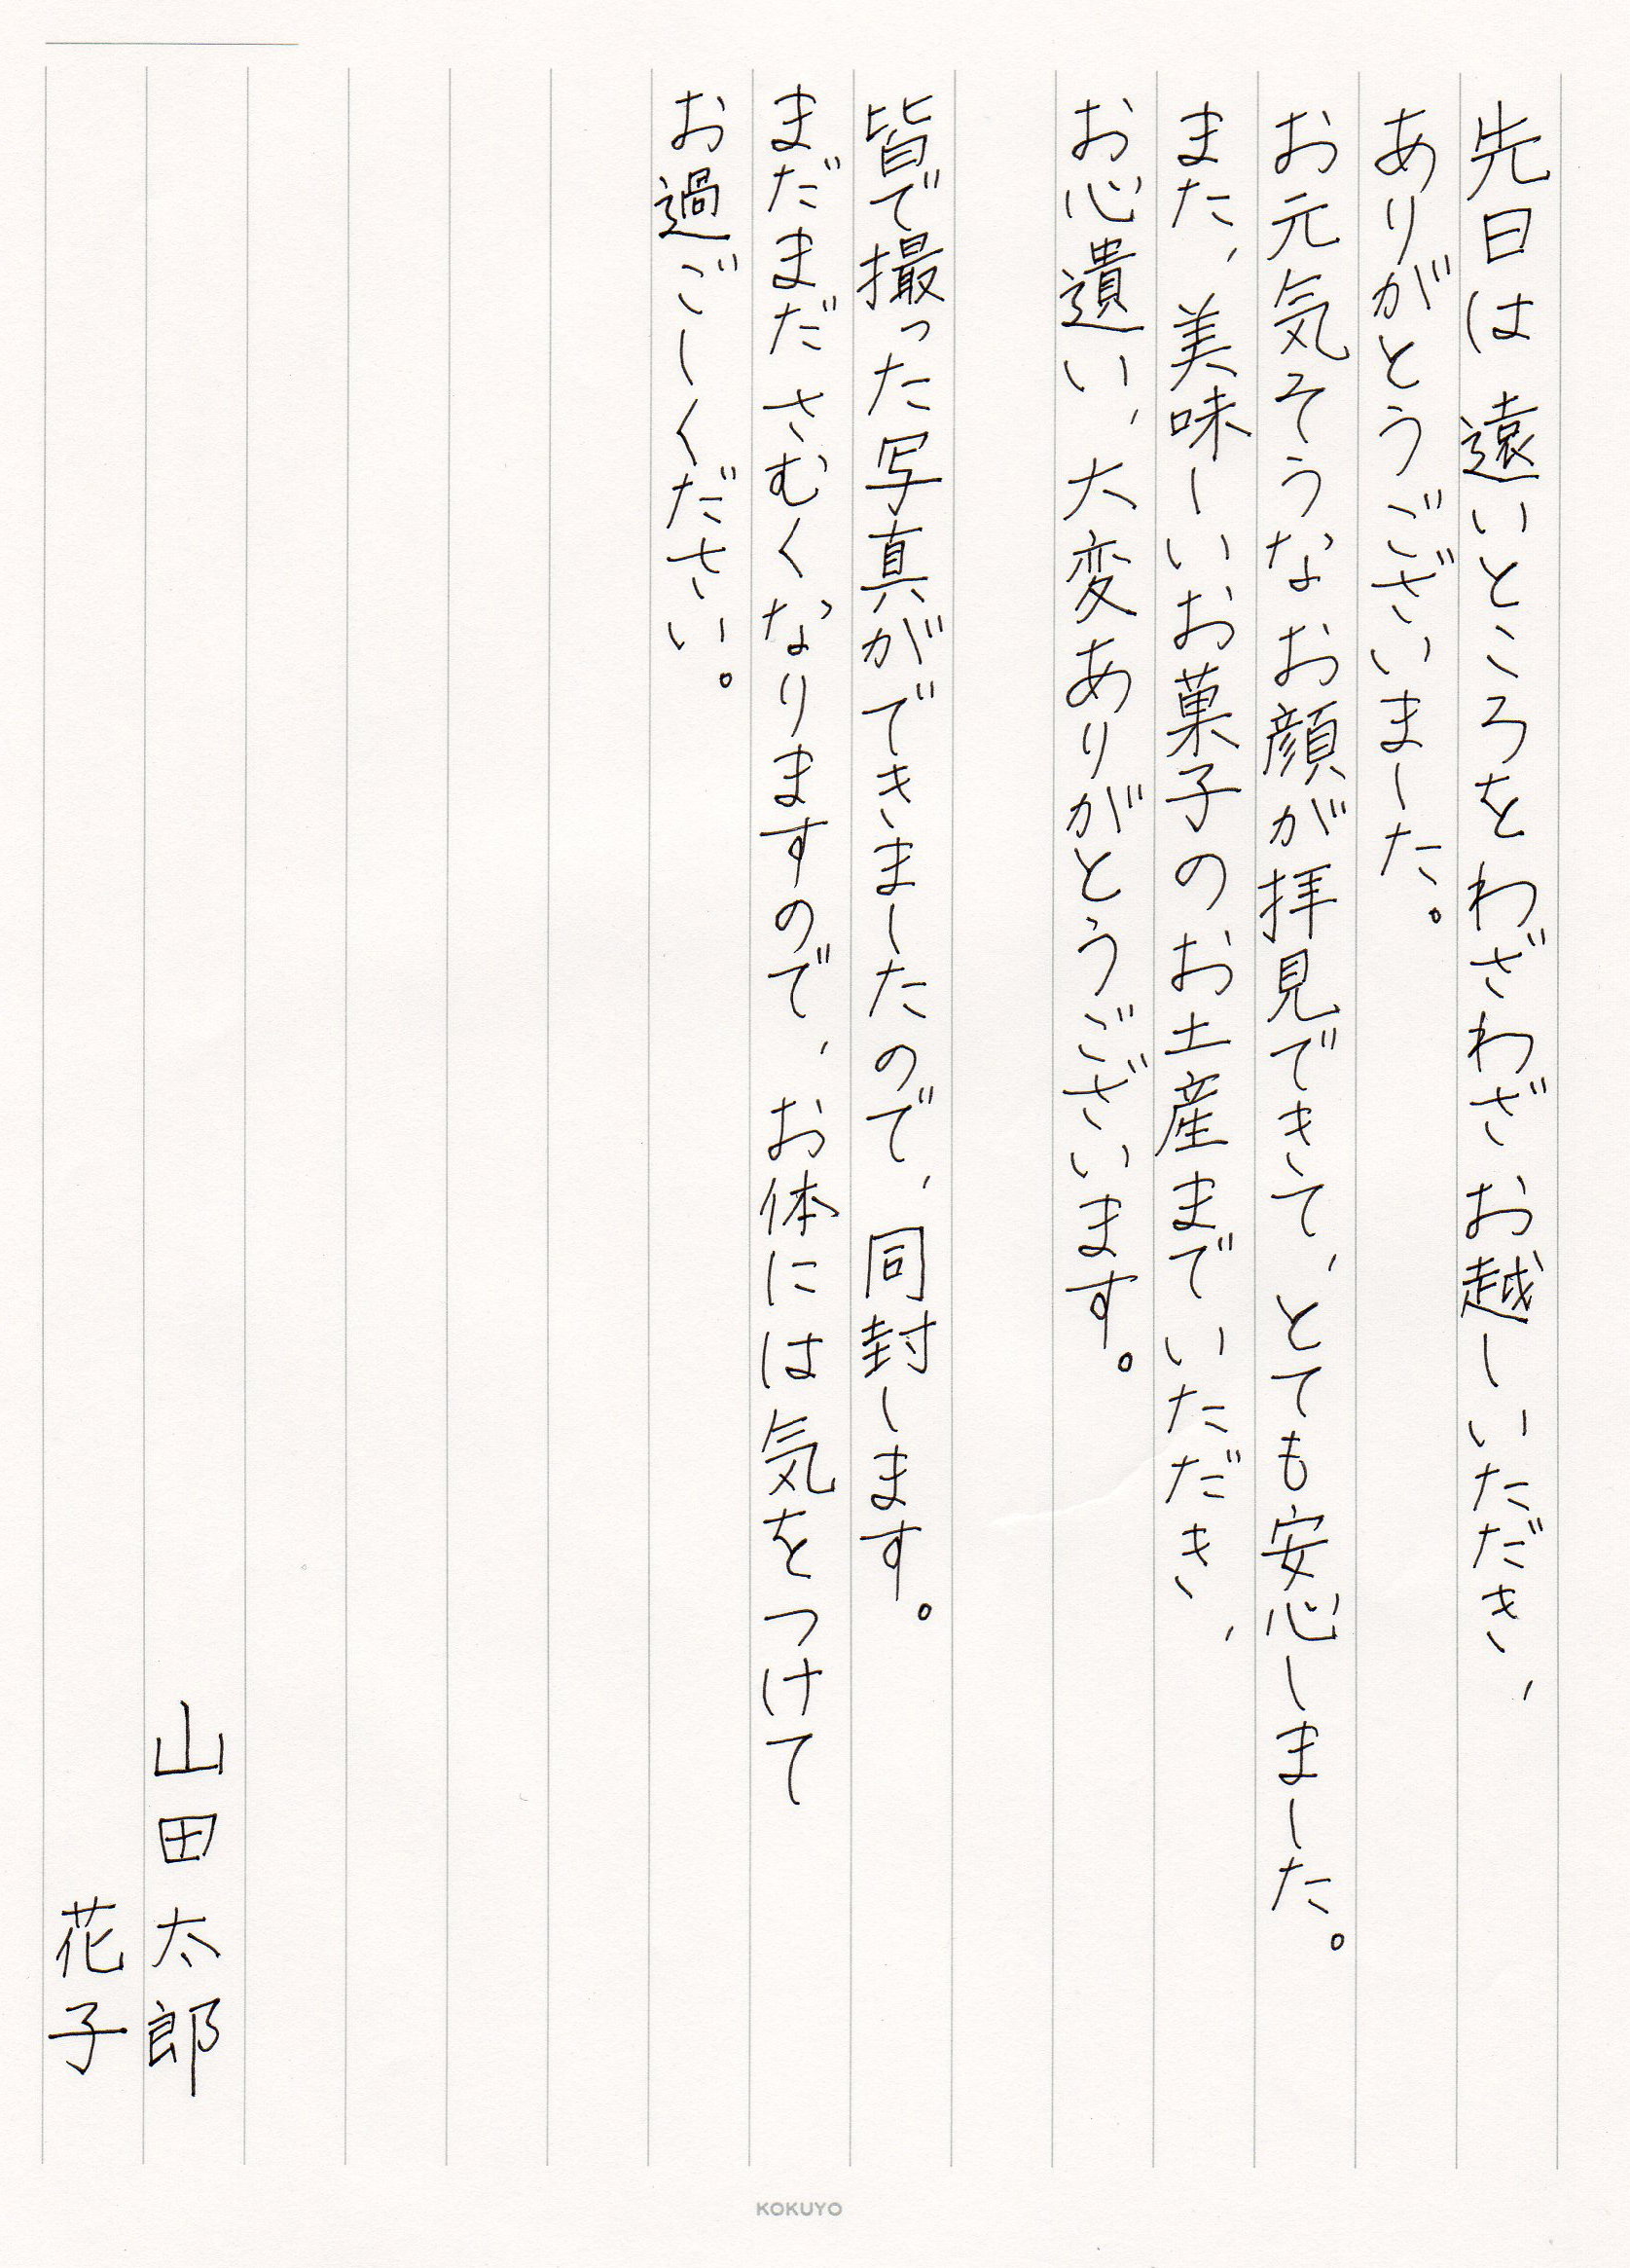 先日は遠いところをわざわざお越しいただき、
ありがとうございました。
お元気そうなお顔が拝見できて、とても安心しました。
また、美味しいお菓子のお土産までいただき、
お心遣い、大変ありがとうございます。
皆で撮った写真ができましたので、同封します。
まだまださむくなりますので、お体には気をつけて
お過ごしください。
山田太郎
花子
KOKUYO